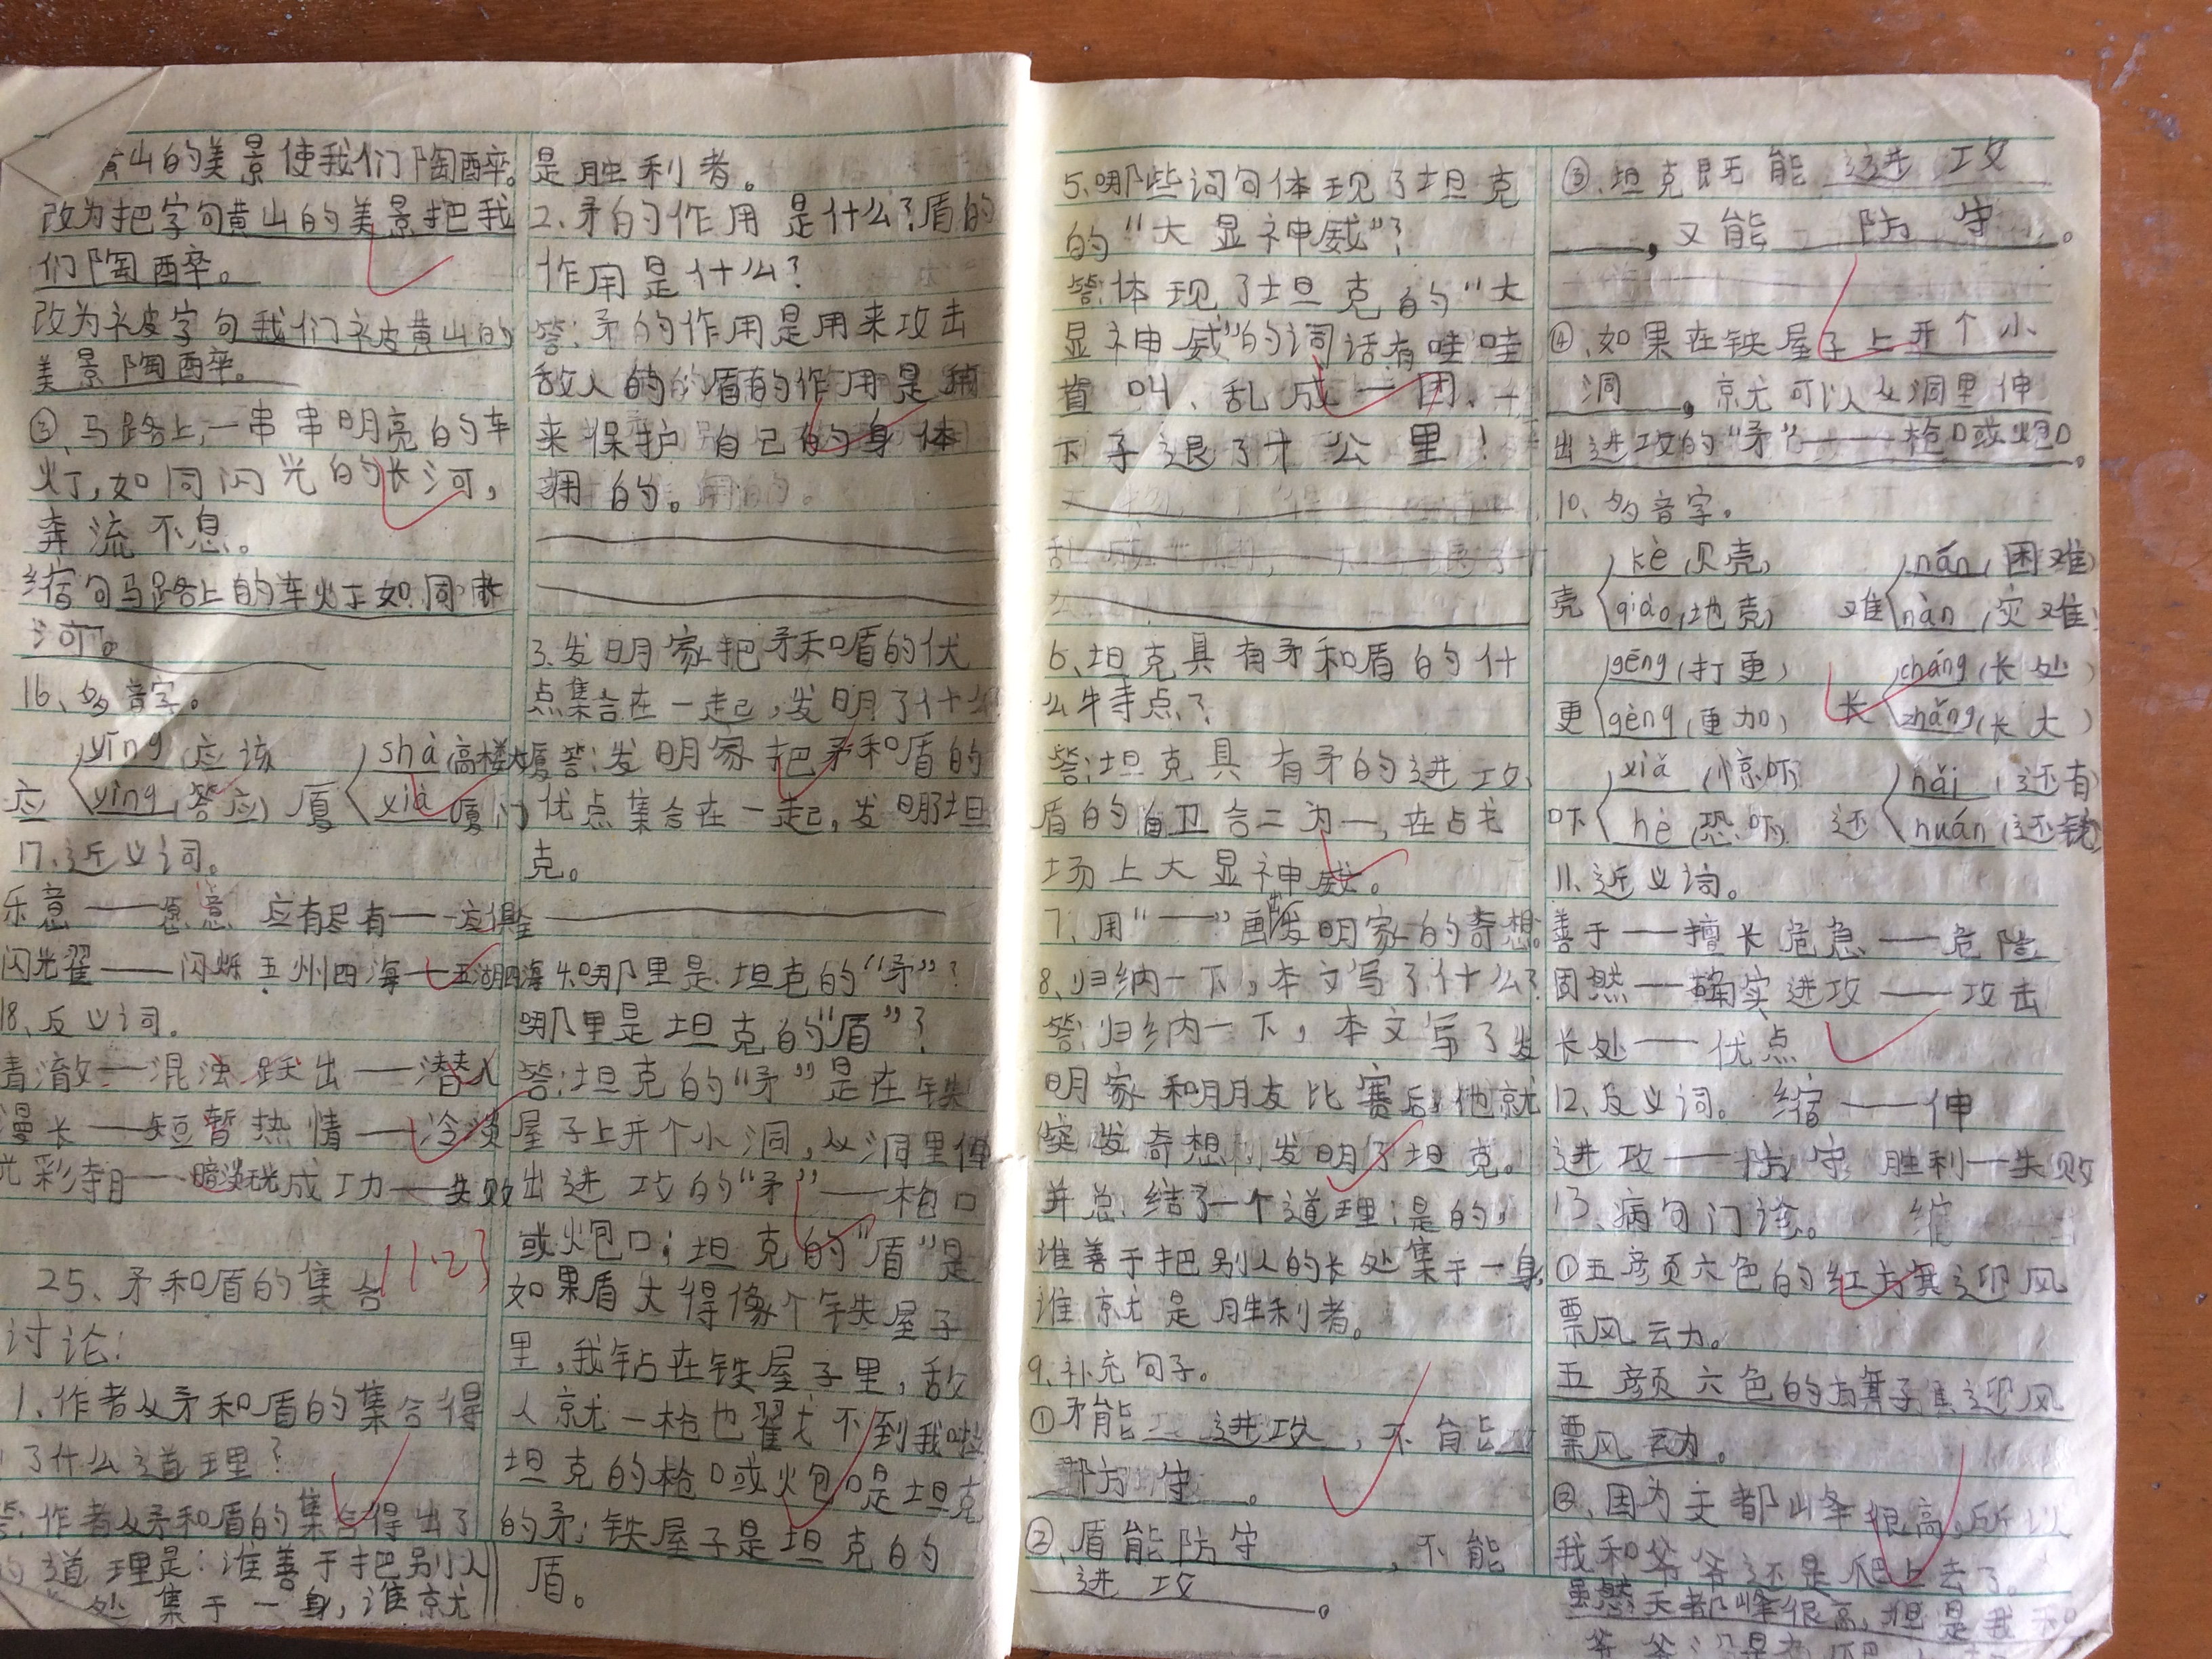 黄山的美景使我们陶醉。
改为把字句黄山的美景把我
们陶醉。
改为被字句我们被黄山的
美景陶醉。
③、马路上,一串串明亮的车
灯,如同闪光的长河,
奔流不息。
缩句马路上的车灯如同
河。
16、多音字。
应 yīng (应该 yìng (答应) 厦 shà (高楼大厦 xià 厦门
17、近义词。
乐意——愿意 应有尽有——应俱全
闪耀——闪烁 五州四海——五湖四海
18、反义词。
清澈——混浊 跃出——潜入
漫长——短暂 热情——冷淡
光彩夺目——暗淡无光 成功——失败
11.23
25、矛和盾的集合
讨论:
1、作者从矛和盾的集合得
了什么道理?
答:作者从矛和盾的集合得出了
的道理是:谁善于把别人
处集于一身,谁就
是胜利者。
2、矛的作用是什么?盾的
作用是什么?
答:矛的作用是用来攻击
敌人的的盾的作用是
来保护自己的身体
用的。
3、发明家把矛和盾的优
点集合在一起,发明了什么
答:发明家把矛和盾的
优点集合在一起,发明坦
克。
4.哪里是坦克的“矛”?
哪里是坦克的“盾”?
答:坦克的“矛”是在铁
屋子上开个小洞,从洞里伸
出进攻的“矛”——枪口
或炮口;坦克的“盾”是
如果盾大得像个铁屋子
里,我钻在铁屋子里,敌
人就一枪也戳不到我啦
坦克的枪口或炮口是坦克
的矛;铁屋子是坦克的
盾。
5.哪些词句体现了坦克
的“大显神威”?
答:体现了坦克的“大
显神威”的词话有哇哇
直叫、乱成一团、十
下子退了十公里!
6、坦克具有矛和盾的什
么特点?
答:坦克具有矛的进攻、
盾的自卫合二为一,在占戈
场上大显神威。
7、用“——”画出发明家的奇想。
8、归纳一下,本文写了什么?
答:归纳一下,本文写了发
明家和朋友比赛后,他就
突发奇想,发明了坦克。
并总结了一个道理:是的,
谁善于把别人的长处集于一身,
谁就是胜利者。
9、补充句子。
①矛能进攻,不能
防守。
②、盾能防守,不能
进攻。
③、坦克既能进攻
,又能防守。
④、如果在铁屋子上开个小
洞,就可以从洞里伸
出进攻的“矛”——枪口或炮口。
10、多音字。
壳 ké (贝壳) qiào (地壳) 难 nán (困难) nàn (灾难)
更 gēng (打更) gèng (更加) 长 cháng (长处) zhǎng (长大)
吓 xià (惊吓) hè (恐吓) 还 hái (还有 huán (还钱)
11、近义词。
善于——擅长 危急——危险
固然——确实 进攻——攻击
长处——优点
12、反义词。 缩——伸
进攻——防守 胜利——失败
13、病句门诊。 缩
①五颜六色的红旗迎风
票风云力。
五颜六色的旗子迎风
票风云力。
②、因为天都山峰很高,所以
我和爷爷还是爬上去了
虽然天都峰很高,但是我和
爷爷还是